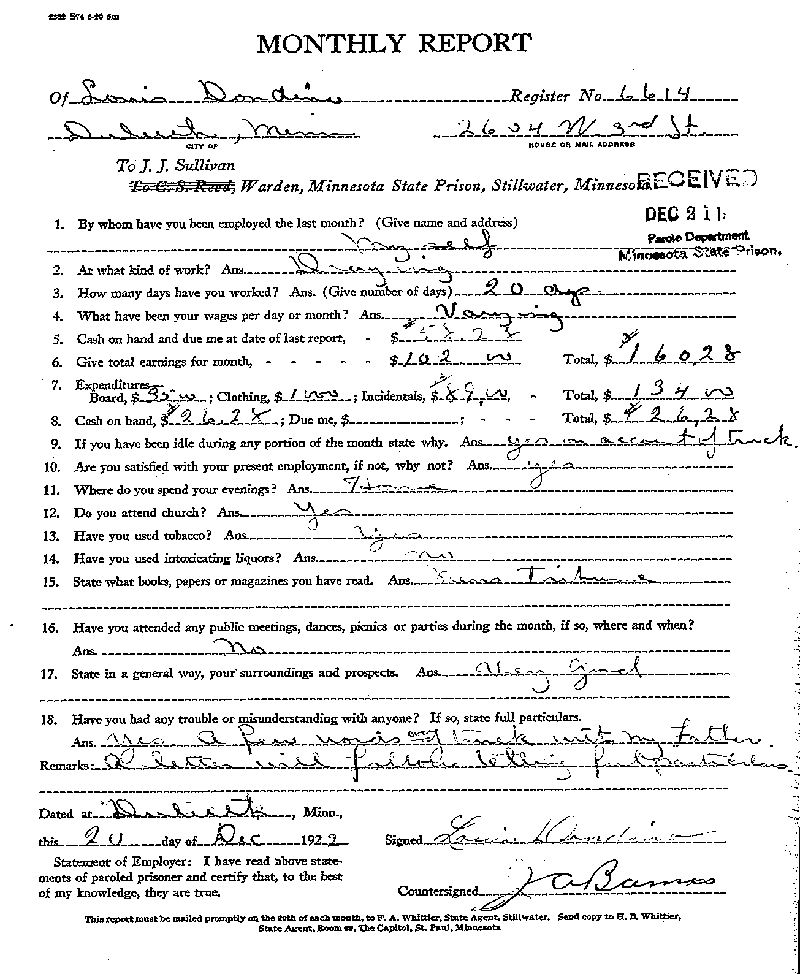 MONTHLY REPORT
Of Louis Dondino Register No. 6614
Duluth, Minn 2604 W 3rd St.
CITY OF HOUSE OR MAIL ADDRESS
To J. J. Sullivan
To C. S. Reed, Warden, Minnesota State Prison, Stillwater, Minnesota
RECEIVED
DEC 21
Parole Department
Minnesota State Prison.
1. By whom have you been employed the last month? (Give name and address)
Myself
2. At what kind of work? Ans. Draying
3. How many days have you worked? Ans. (Give number of days) 20 days
4. What have been your wages per day or month? Ans. Varying
5. Cash on hand and due me at date of last report, - $58.28
6. Give total earnings for month, - - - - - $102 00 Total, $160 28
7. Expenditures—
Board, $35 00; Clothing, $10 00; Incidentals, $89.00, - Total, $134 00
8. Cash on hand, $26.28; Due me, $ ; - - - Total, $26,28
9. If you have been idle during any portion of the month state why. Ans. Yes on account of truck.
10. Are you satisfied with your present employment, if not, why not? Ans. Yes
11. Where do you spend your evenings? Ans. Home
12. Do you attend church? Ans. Yes
13. Have you used tobacco? Ans. Yes
14. Have you used intoxicating liquors? Ans. no
15. State what books, papers or magazines you have read. Ans. News Tribune
16. Have you attended any public meetings, dances, picnics or parties during the month, if so, where and when?
Ans. No
17. State in a general way, your surroundings and prospects. Ans. Very Good
18. Have you had any trouble or misunderstanding with anyone? If so, state full particulars.
Ans. Yes. A few words over truck with my Father.
Remarks: A letter will follow telling full particulars
Dated at Duluth, Minn.,
this 20 day of Dec 1922 Signed Louis Dondino
Statement of Employer: I have read above statements of paroled prisoner and certify that, to the best of my knowledge, they are true.
Countersigned
This report must be mailed promptly on the 20th of each month, to F. A. Whittier, State Agent, Stillwater. Send copy to H. B. Whittier,
State Agent, Room, The Capitol, St. Paul, Minnesota